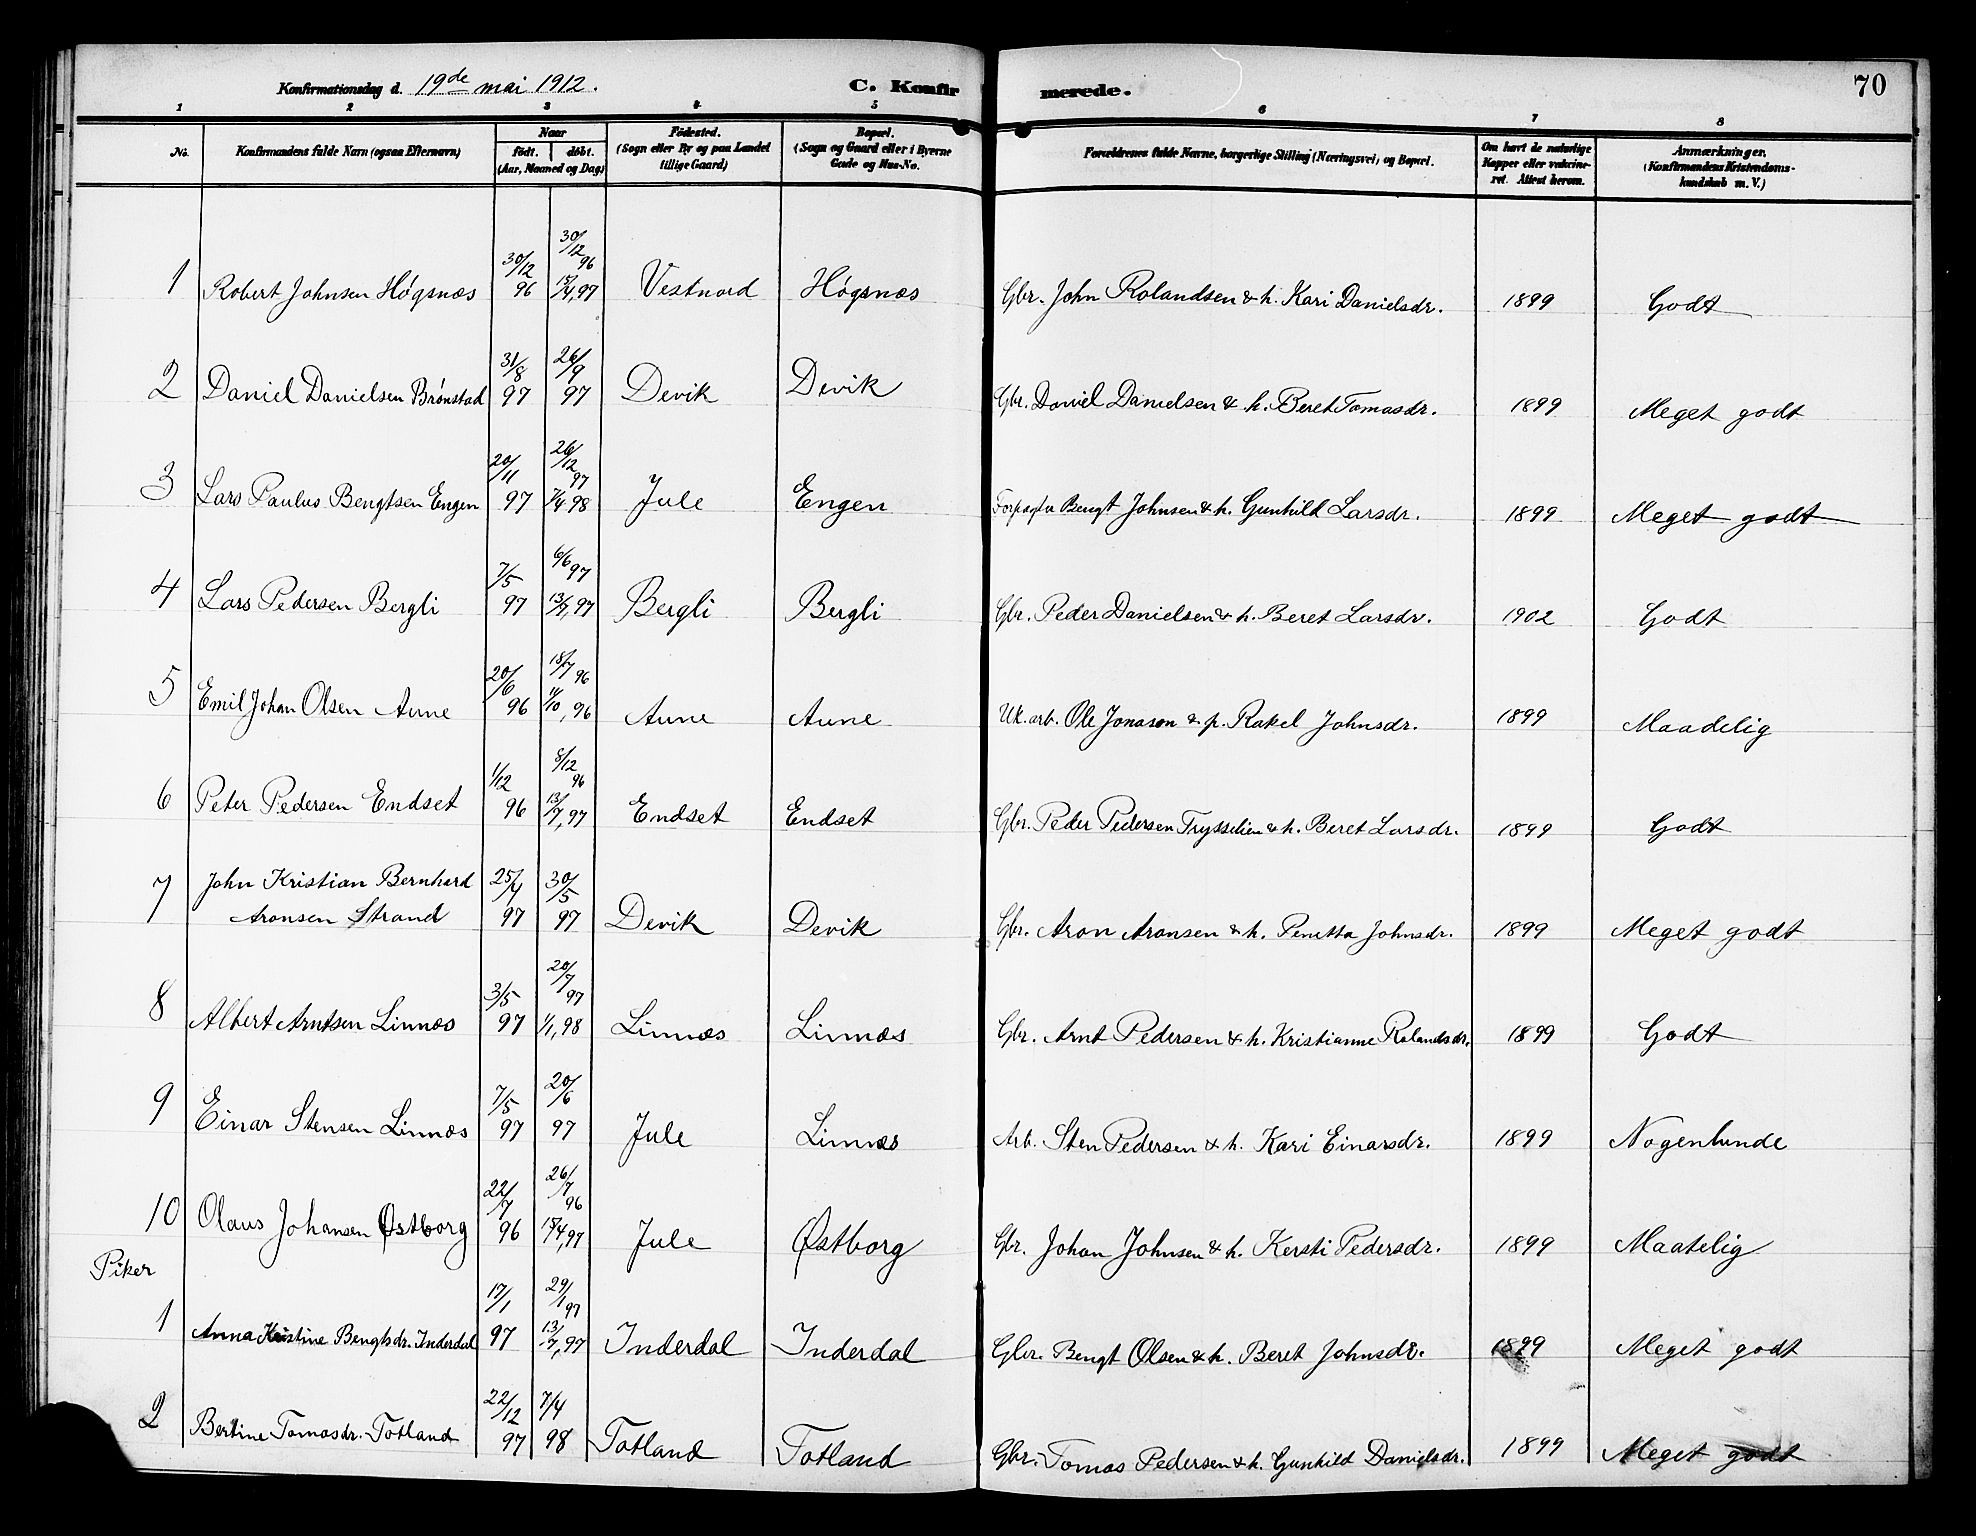 Konfirmationsdag d. 19de mai 1912. C. Konfirmerede. 70
1 2 3 4 5 6 7 8
No. Konfirmandens fulde Navn (ogsaa Efternavn) Naar født. døbt. (Aar, Maaned og Dag) Fødested. (Sogn eller By og paa Landet tillige Gaard) Bopæl. (Sogn og Gaard eller i Byerne Gade og Hus-No. Forældrenes fulde Navne, borgerlige Stilling (Næringsvei) og Bopæl. Om havt de naturlige Kopper eller vakcineret. Attest herom. Anmærkninger. (Konfirmandens Kristendomskundskab m. V.)
1 Robert Johnsen Høgsnæs 30/12 96 30/12 96 17/4, 97 Vestnord Høgsnæs Gbr. John Rolandsen & h. Kari Danielsdr. 1899 Godt
2 Daniel Danielsen Brønstad 31/8 97 26/9 97 Devik Devik Gbr. Daniel Danielsen & h. Beret Tomasdr. 1899 Meget godt
3 Lars Paulus Bengtsen Engen 20/11 97 26/12 97 7/4 98 Jule Engen Forpagter Bengt Johnsen & h. Gunhild Larsdr. 1899 Meget godt
4 Lars Pedersen Bergli 7/5 97 6/6 97 13/7, 97 Bergli Bergli Gbr. Peder Danielsen & h. Beret Larsdr. 1902 Godt
5 Emil Johan Olsen Aune 20/6 96 18/7 96 11/10, 96 Aune Aune Uk. arb. Ole Jonason & p. Rakel Johnsdr. 1899 Maadelig
6 Peter Pedersen Endset 1/12 96 8/12 96 13/7, 97 Endset Endset Gbr. Peder Pedersen Trysselien & h. Beret Larsdr. 1899 Godt
7 John Kristian Bernhard Aronsen Strand 25/4 97 30/5 97 Devik Devik Gbr. Aron Aronsen & h. Penetta Johnsdr. 1899 Meget godt
8 Albert Arntsen Linnæs 3/5 97 20/7 97 1/1, 98 Linnæs Linnæs Gbr. Arnt Pedersen & h. Kristianne Rolandsdr. 1899 Godt
9 Einar Stensen Linnæs 7/5 97 20/6 97 Jule Linnæs Arb. Sten Pedersen & h. Kari Einarsdr. 1899 Nogenlunde
10 Olaus Johansen Østborg 22/7 96 26/7 96 17/4, 97 Jule Østborg Gbr. Johan Johnsen & h. Kersti Pedersdr. 1899 Maatelig
Piker
1 Anna Kristine Bengtsdr. Inderdal 17/1 97 29/1 97 13/7, 97 Inderdal Inderdal Gbr. Bengt Olsen & h. Beret Johnsdr. 1899 Meget godt
2 Bertine Tomasdr. Totland 22/12 97 7/4 98 Totland Totland Gbr. Tomas Pedersen & h. Gunhild Danielsdr. 1899 Meget godt